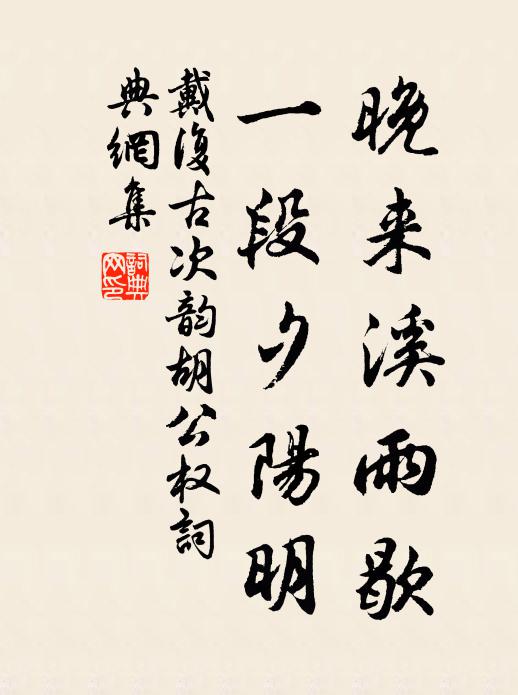 晚来溪雨歇
一段夕陽明
戴復古次韵胡公权詞
典網集
詞典网印